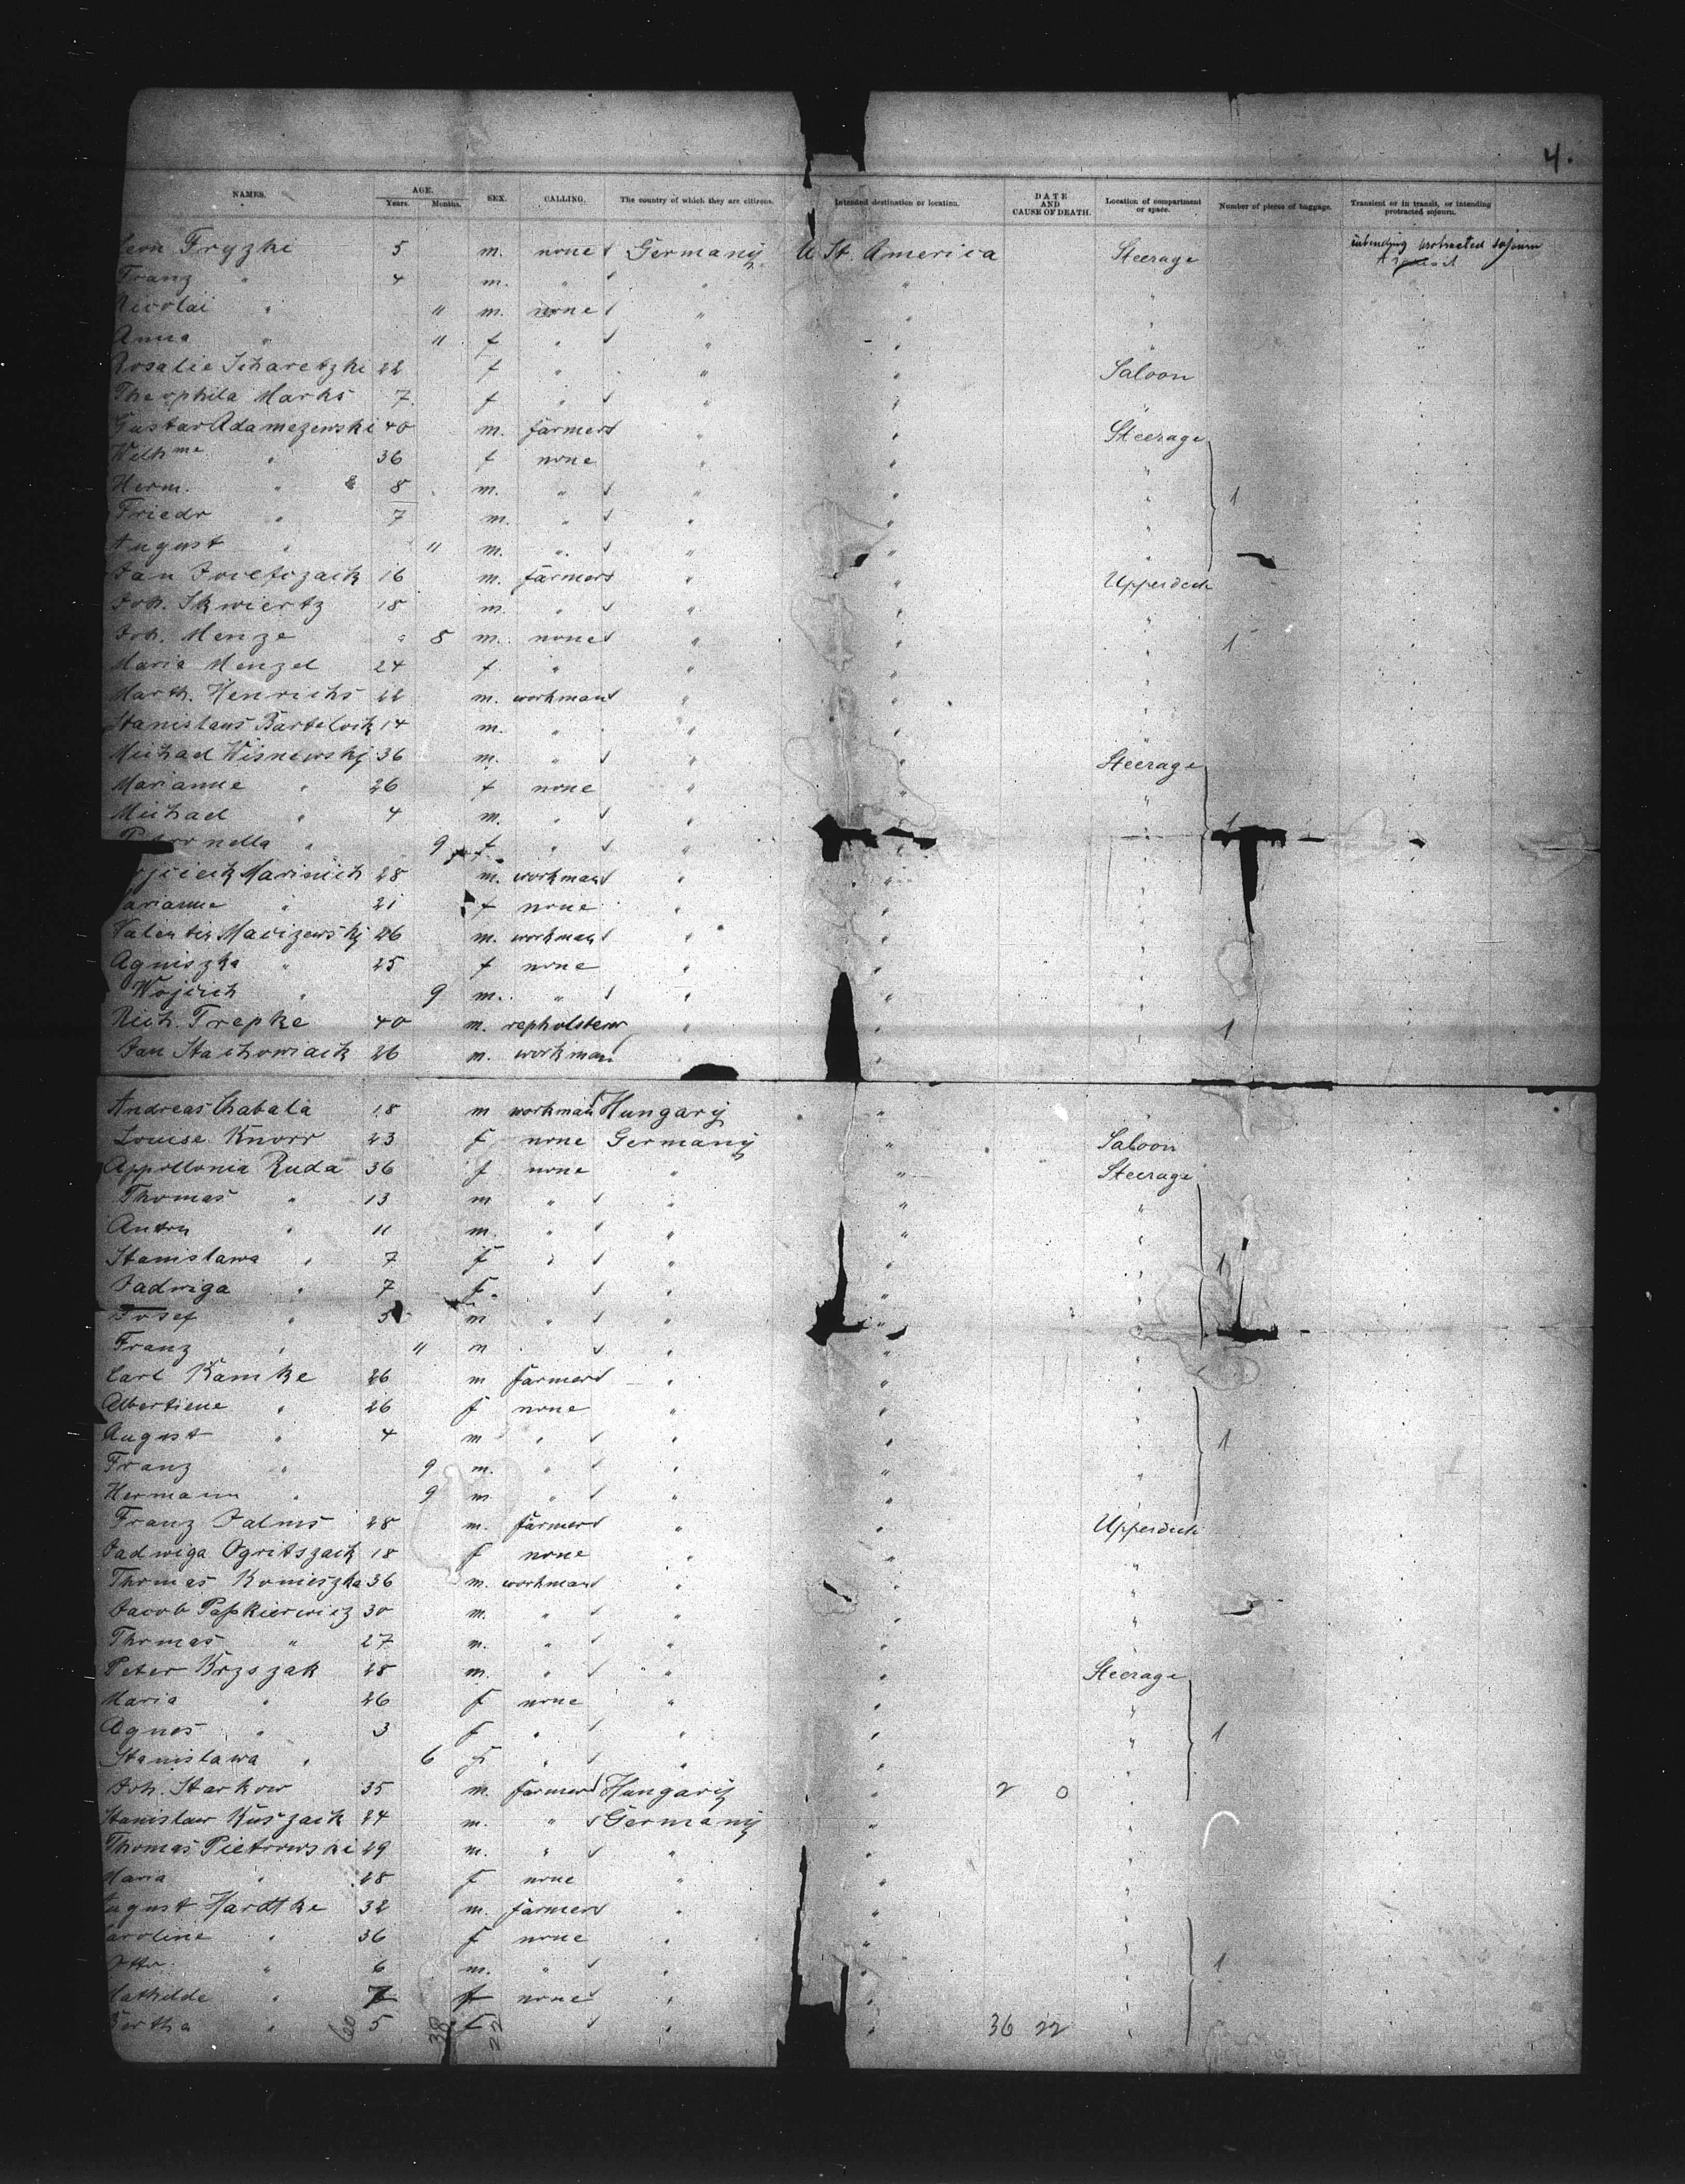 4.
NAMES. AGE. Years. Months. SEX. CALLING. The country of which they are citizens. Intended destination or location. DATE AND CAUSE OF DEATH. Location of compartment or space. Number of pieces of baggage. Transient or in transit, or intending protracted sojourn.
Leon Fryzki 5 m. none Germany U St. America Steerage intending protracted sojourn
Franz " 4 m. " " " "
Nicolai " 11 m. none " " "
Anna " 11 f " " " "
Rosalie 22 f " " " Saloon
Theophila Marks 7 f " " " "
Gustav Adamezewski 40 m. farmer " " Steerage
Wilhme " 36 f none " " "
Herm. " 8 m. " " " " 1
Friedr " 7 m. " " " "
August " 11 m. " " " "
Jan 16 m. farmer " " Upperdeck
Joh. Skwiertz 18 m. " " " "
Joh. Menze " 8 m. none " " " 1
Maria Menzel 24 f " " " "
Marth. Henrichs 22 m. workman " " "
Stanislaus 14 m. " " " "
Michael Wisnewsky 36 m. " " " Steerage
Marianne " 26 f none " " "
Michael " 4 m. " " " " 1
" 9 f " " " "
28 m. workman " " "
Marianne " 21 f none " " "
Valentin 26 m. workman " " "
Agniszka " 25 f none " " "
Wojcich " 9 m. " " " "
Rich Trepke 40 m. " " " 1
Jan Stachowiack 26 m. workman " " "
Andreas Chabala 18 m workman Hungary " "
Louise Knorr 23 f none Germany " Saloon
Appollonia Ruda 36 f none " " Steerage
Thomas " 13 m " " " "
Anton " 11 m. " " " "
Stanislawa " 7 f " " " " 1
Jadwiga " 7 f. " " "
Josef " 5 m " " " "
Franz " 11 m " " "
Carl Kamke 26 m farmer " " "
Albertiene " 26 f none " " "
August " 4 m " " " " 1
Franz " 9 m. " " " "
Hermann " 9 m " " " "
Franz Jalms 28 m. farmer " " Upperdeck
Jadwiga Ogritszack 18 f none " " "
Thomas Konieszka 36 m. workman " " "
Jacob Papkierwicz 30 m. " " " "
Thomas " 27 m. " " " "
Peter Krzszak 28 m. " " " Steerage
Maria " 26 f none " " "
Agnes " 3 f " " " " 1
Stanislawa " 6 f " " " "
Joh. Starkow 35 m. farmer Hungary " 2 0 "
Stanislaw Kuszack 24 m. " Germany " "
Thomas Pietrowski 29 m. " " " "
Maria " 28 f none " " "
August Hardtke 32 m. farmer " " "
Caroline " 36 f none " " "
Otto " 6 m. " " " " 1
Mathilde " 7 f none " " "
Bertha " 5 f " " "
60 38 22 36 22